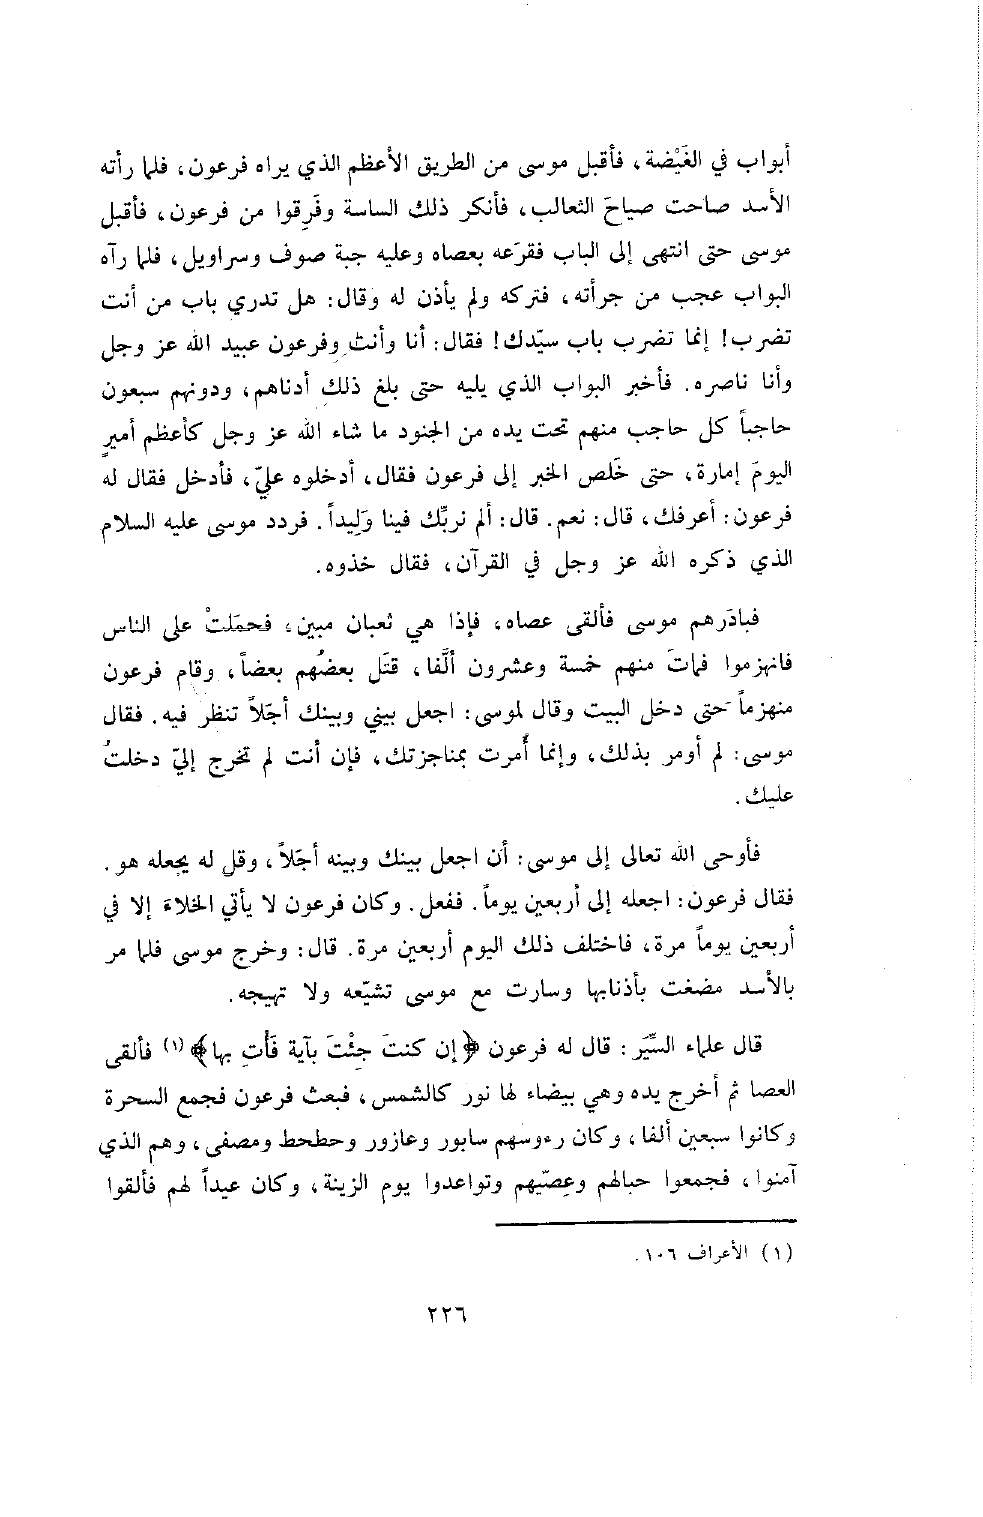 أبواب في الغَيْضة، فأقبل موسى من الطريق الأعظم الذي يراه فرعون، فلما رأته
الأسد صاحت صياحَ الثعالب، فأنكر ذلك الساسة وفَرِقوا من فرعون، فأقبل
موسى حتى انتهى إلى الباب فقرَعه بعصاه وعليه جبة صوف وسراويل، فلما رآه
البواب عجب من جرأته، فتركه ولم يأذن له وقال: هل تدري باب من أنت
تضرب! إنما تضرب باب سيّدك! فقال: أنا وأنت وفرعون عبيد الله عز وجل
وأنا ناصره. فأخبر البواب الذي يليه حتى بلغ ذلك أدناهم، ودونهم سبعون
حاجباً كل حاجب منهم تحت يده من الجنود ما شاء الله عز وجل كأعظم أميرٍ
اليومَ إمارة، حتى خَلص الخبر إلى فرعون فقال، أدخلوه عليّ، فأدخل فقال له
فرعون: أعرفك، قال: نعم. قال: ألم نربِّك فينا وَلِيداً. فردد موسى عليه السلام
الذي ذكره الله عز وجل في القرآن، فقال خذوه.
فبادَرهم موسى فألقى عصاه، فإذا هي ثعبان مبين، فحمَلتْ على الناس
فانهزموا فماتَ منهم خمسة وعشرون ألَّفا، قتَل بعضُهم بعضاً، وقام فرعون
منهزماً حتى دخل البيت وقال لموسى: اجعل بيني وبينك أجَلاً تنظر فيه. فقال
موسى: لم أومر بذلك، وإنما أُمرت بمناجزتك، فإن أنت لم تخرج إليّ دخلتُ
عليك.
فأوحى الله تعالى إلى موسى: أن اجعل بينك وبينه أجَلاً، وقل له يجعله هو.
فقال فرعون: اجعله إلى أربعين يوماً. ففعل. وكان فرعون لا يأتي الخلاءَ إلا في
أربعين يوماً مرة، فاختلف ذلك اليوم أربعين مرة. قال: وخرج موسى فلما مر
بالأسد مضغت بأذنابها وسارت مع موسى تشيّعه ولا تهيجه.
قال علماء السِّيَر: قال له فرعون ﴿إن كنتَ جِئْتَ بآية فَأتِ بها﴾ (١) فألقى
العصا ثم أخرج يده وهي بيضاء لها نور كالشمس، فبعث فرعون فجمع السحرة
وكانوا سبعين ألفا، وكان رءوسهم سابور وعازور وحطحط ومصفى، وهم الذي
آمنوا، فجمعوا حبالهم وعِصيّهم وتواعدوا يوم الزينة، وكان عيداً لهم فألقوا
(١) الأعراف ١٠٦.
٢٢٦